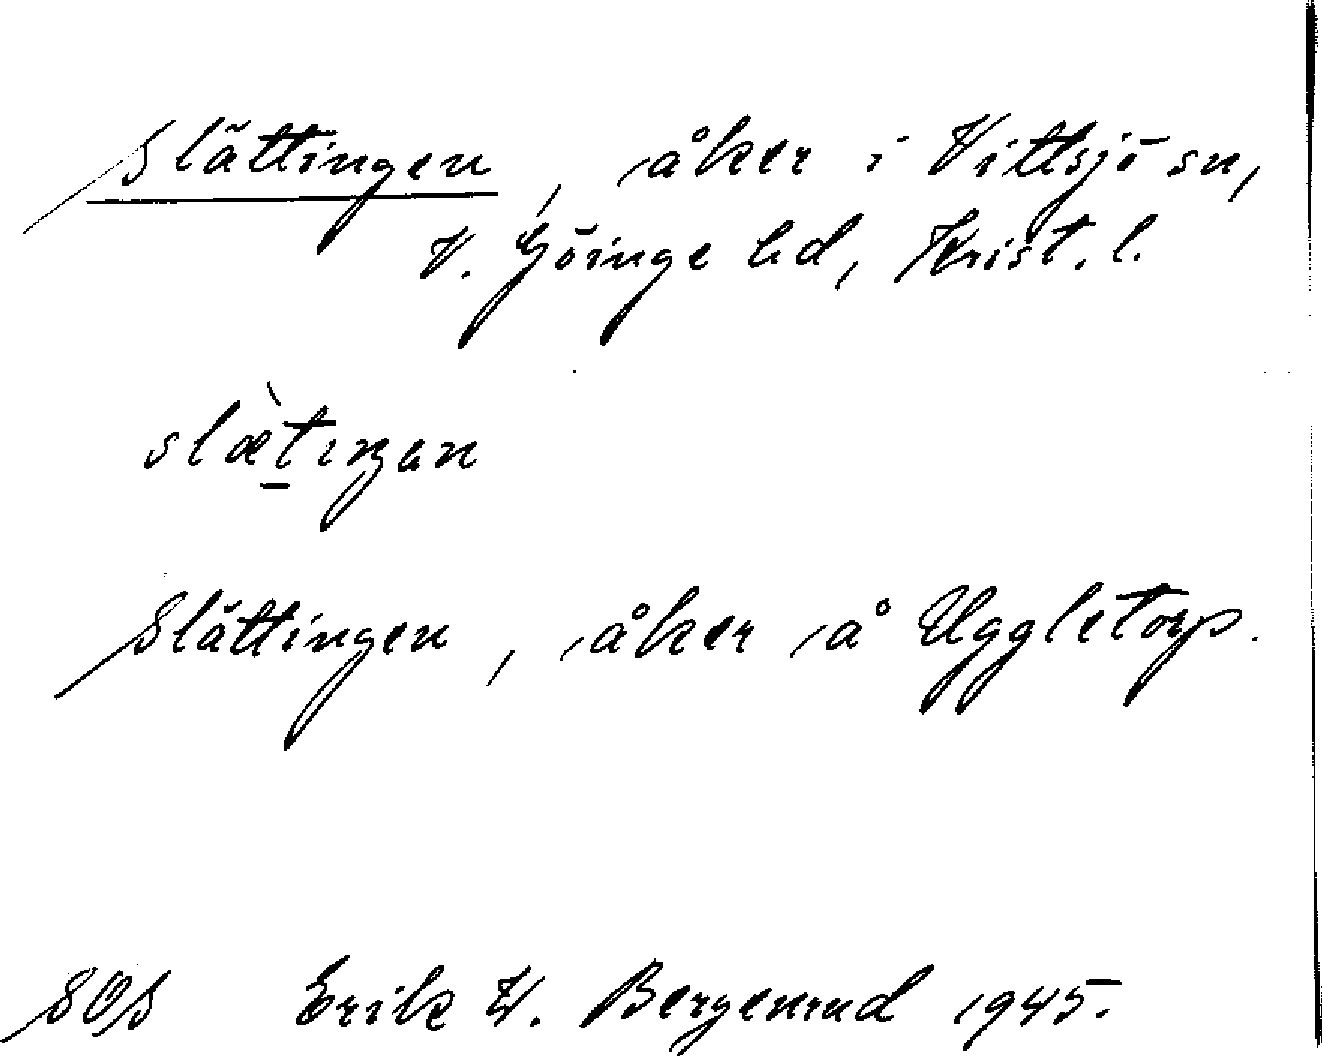 Slättingen, åker i Vittsjö sn,
V. Göinge hd, Krist. l.
slæ̀t̲ıŋan
Slättingen, åker å Uggletorp.
SOS Erik W. Bergenrud 1945.